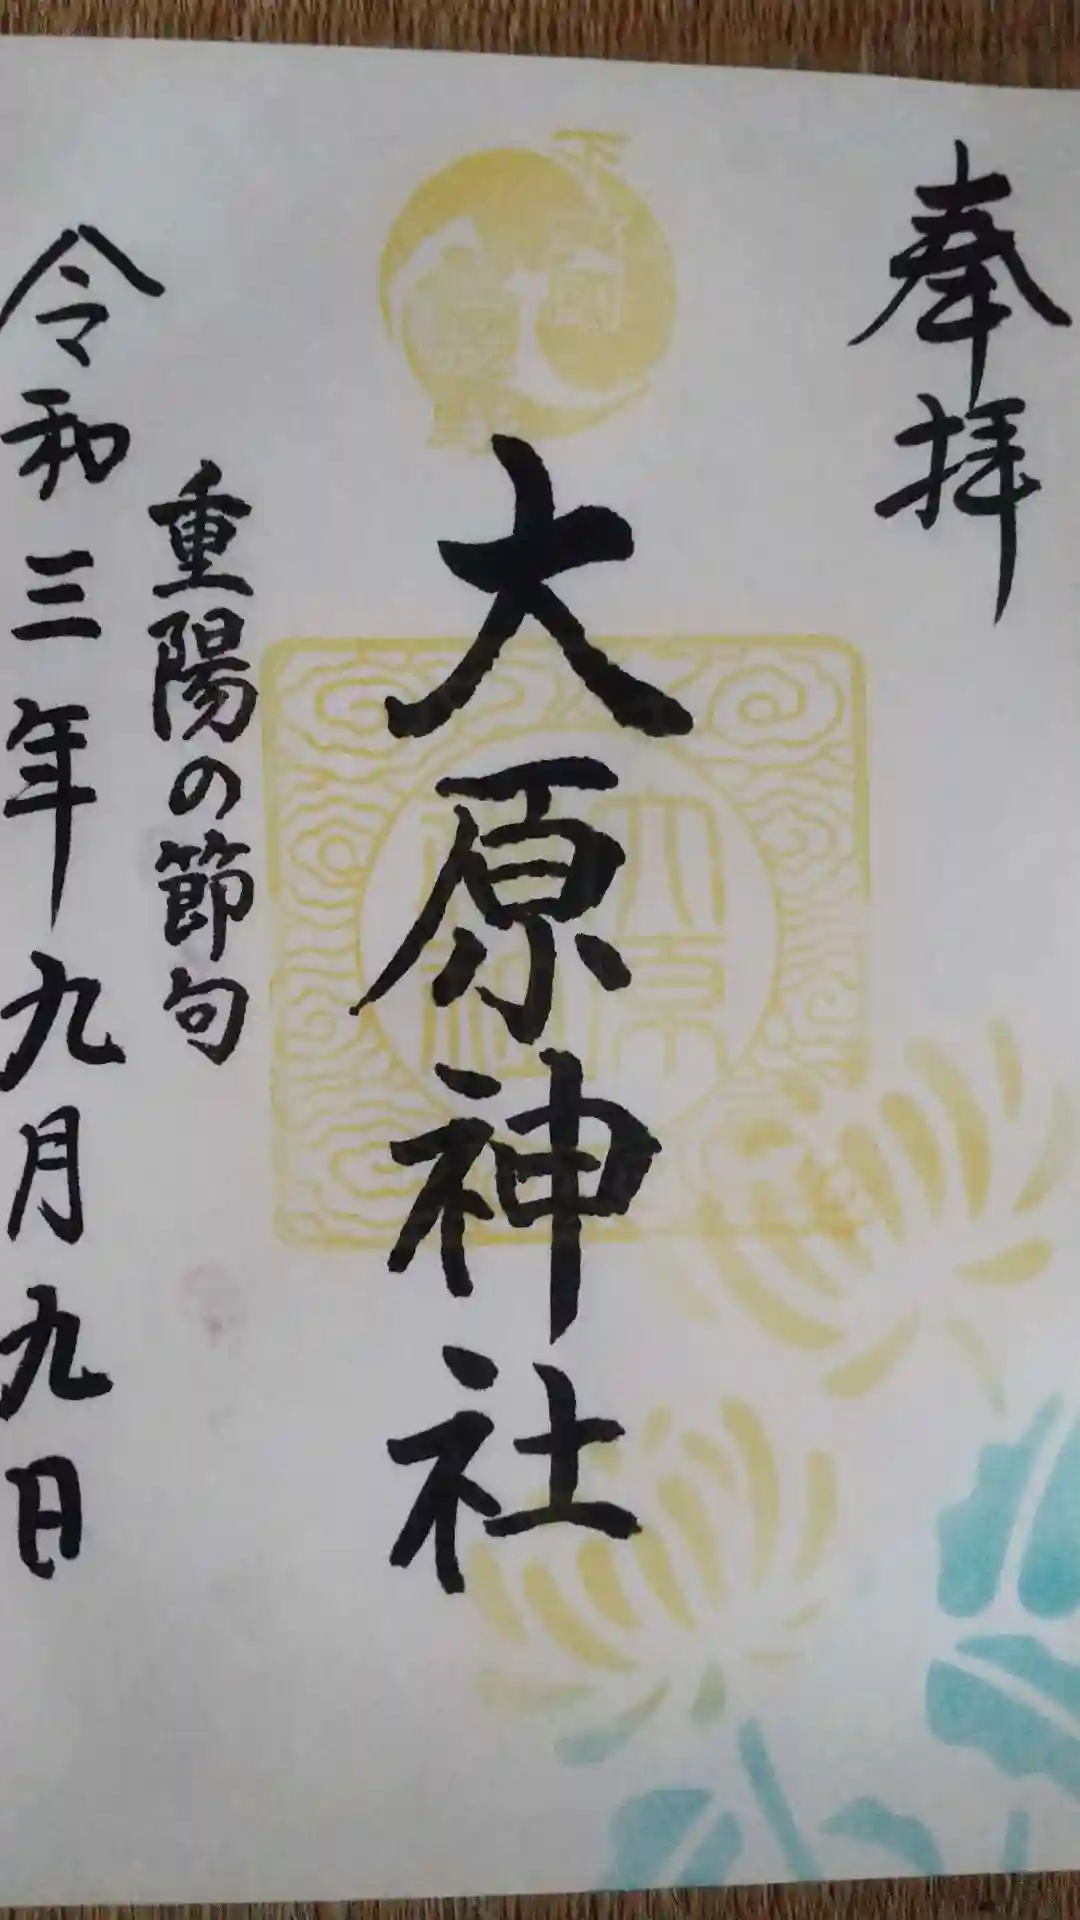 奉拝
大原神社
重陽の節句
令和三年九月九日